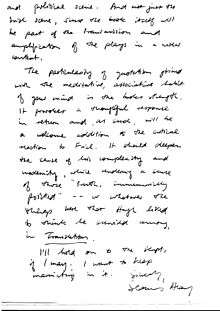 and political scene. And not just the
book scene, since the book itself will
be part of the transmission and
amplification of the plays in a wider
context.
The particularity of quotation joined
with the meditative, associative habit
of your mind is the book's strength.
It provokes a thoughtful response
in return and, as such, will be
a welcome addition to the critical
reaction to Friel. It should deepen
the sense of his complexity and
modernity, while rendering a sense
of those truths, immemorially
posited -- or whatever the
things were that Hugh liked
to think he
in Translations.
I'll hold on to the script,
if I may: I want to keep
in it. Sincerely,
Seamus Heaney